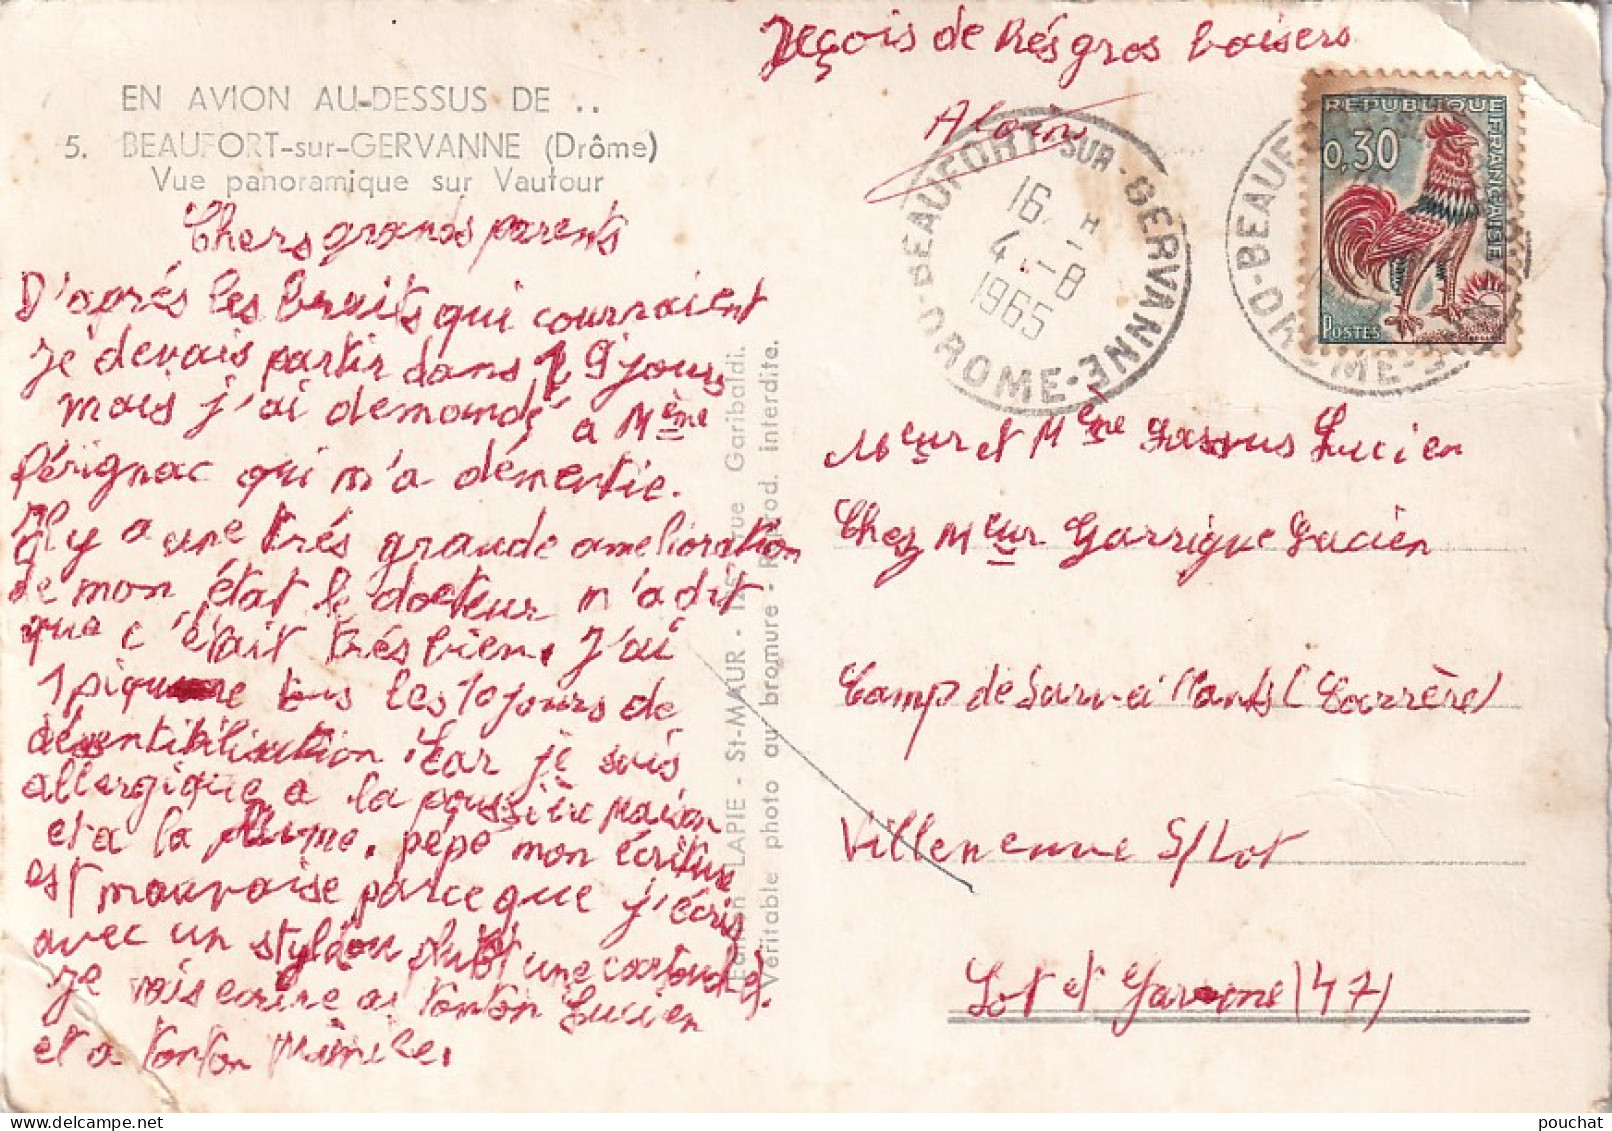 EN AVION AU-DESSUS DE ..
5. BEAUFORT-sur-GERVANNE (Drôme)
Vue panoramique sur Vautour
Chers grands parents
D'aprés les bruits qui courraient
je devais partir dans 9 jours
mais j'ai demandé a Mème
Pérignac qui m'a démentie.
Il y a une trés grande amelioration
de mon état le docteur m'a dit
que c'était trés bien. J'ai
1 piqure tous les 10 jours de
désentibilisation. Car je suis
allergique a la poussière maison
et a la plume. pépé mon écriture
est mauvaise parce que j'écris
avec un stylo
Je vais ecrire a tonton Lucien
et a tonton
Reçois de trés gros baisers
Alain
BEAUFORT-SUR-GERVANNE
DROME
16 H
4 -8
1965
REPUBLIQUE FRANÇAISE
0,30
POSTES
Meur et Mème Lucien
Chez Meur Garrigue Lucien
Camp de (Carrère)
Villeneuve S/Lot
Lot et Garonne (47)
Edition LAPIE - St-MAUR - rue Garibaldi.
Véritable photo au bromure - Reprod. interdite.
pouchat